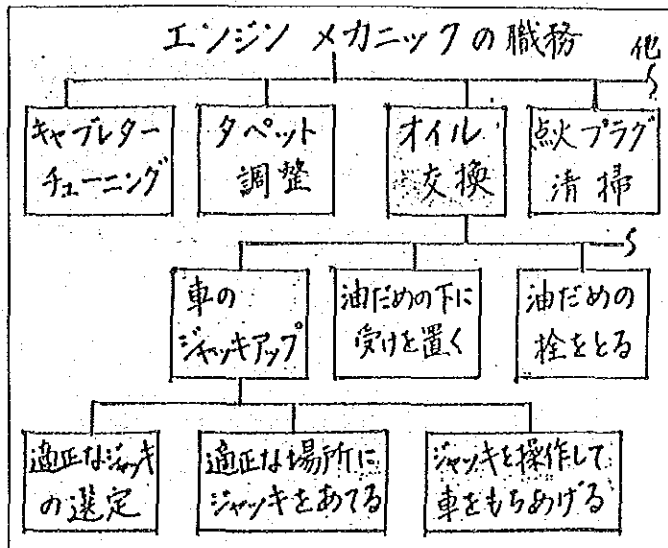 エンジン メカニックの職務 他
キャブレター
チューニング
タペット
調整
オイル
交換
点火プラグ
清掃
車の
ジャッキアップ
油だめの下に
受けを置く
油だめの
栓をとる
適正なジャッキ
の選定
適正な場所に
ジャッキをあてる
ジャッキを操作して
車をもちあげる